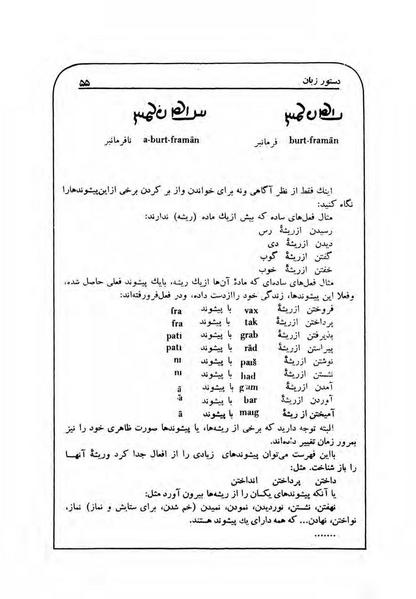 دستور زبان ۵۵
burt-framān فرمانبر a-burt-framān نافرمانبر
اینك فقط از نظر آگاهی ونه برای خواندن واز بر کردن برخی از این‌پیشوندهارا
نگاه کنید:
مثال فعل‌های ساده که بیش ازیك ماده (ریشه) ندارند:
رسیدن ازریشهٔ رس
دیدن ازریشهٔ دی
گفتن ازریشهٔ گوب
خفتن ازریشهٔ خوب
مثال فعل‌های ساده‌ای که مادهٔ آن‌ها ازیك ریشه، بایك پیشوند فعلی حاصل شده،
وفعلا این پیشوندها، زندگی خود راازدست داده، ودر فعل‌فرورفته‌اند:
فروختن ازریشهٔ vax با پیشوند fra
پرداختن ازریشهٔ tak با پیشوند fra
پذیرفتن ازریشهٔ grab با پیشوند pati
پیراستن ازریشهٔ rād با پیشوند pati
نوشتن ازریشهٔ paiš با پیشوند ni
نشستن ازریشهٔ had با پیشوند ni
آمدن ازریشهٔ gam با پیشوند ā
آوردن ازریشهٔ bar با پیشوند ā
آمیختن از ریشهٔ maig با پیشوند ā
البته توجه دارید که برخی از ریشه‌ها، یا پیشوندها صورت ظاهری خود را نیز
بمرور زمان تغییر داده‌اند.
بااین فهرست می‌توان پیشوندهای زیادی را از افعال جدا کرد وریشهٔ آنهـا
را باز شناخت. مثل:
داختن پرداختن انداختن
یا آنکه پیشوندهای یکسان را از ریشه‌ها بیرون آورد مثل:
نهفتن، نشستن، نوردیدن، نمودن، نمیدن (خم شدن، برای ستایش و نماز) نماز،
نواختن، نهادن... که همه دارای یك پیشوند هستند.
.......